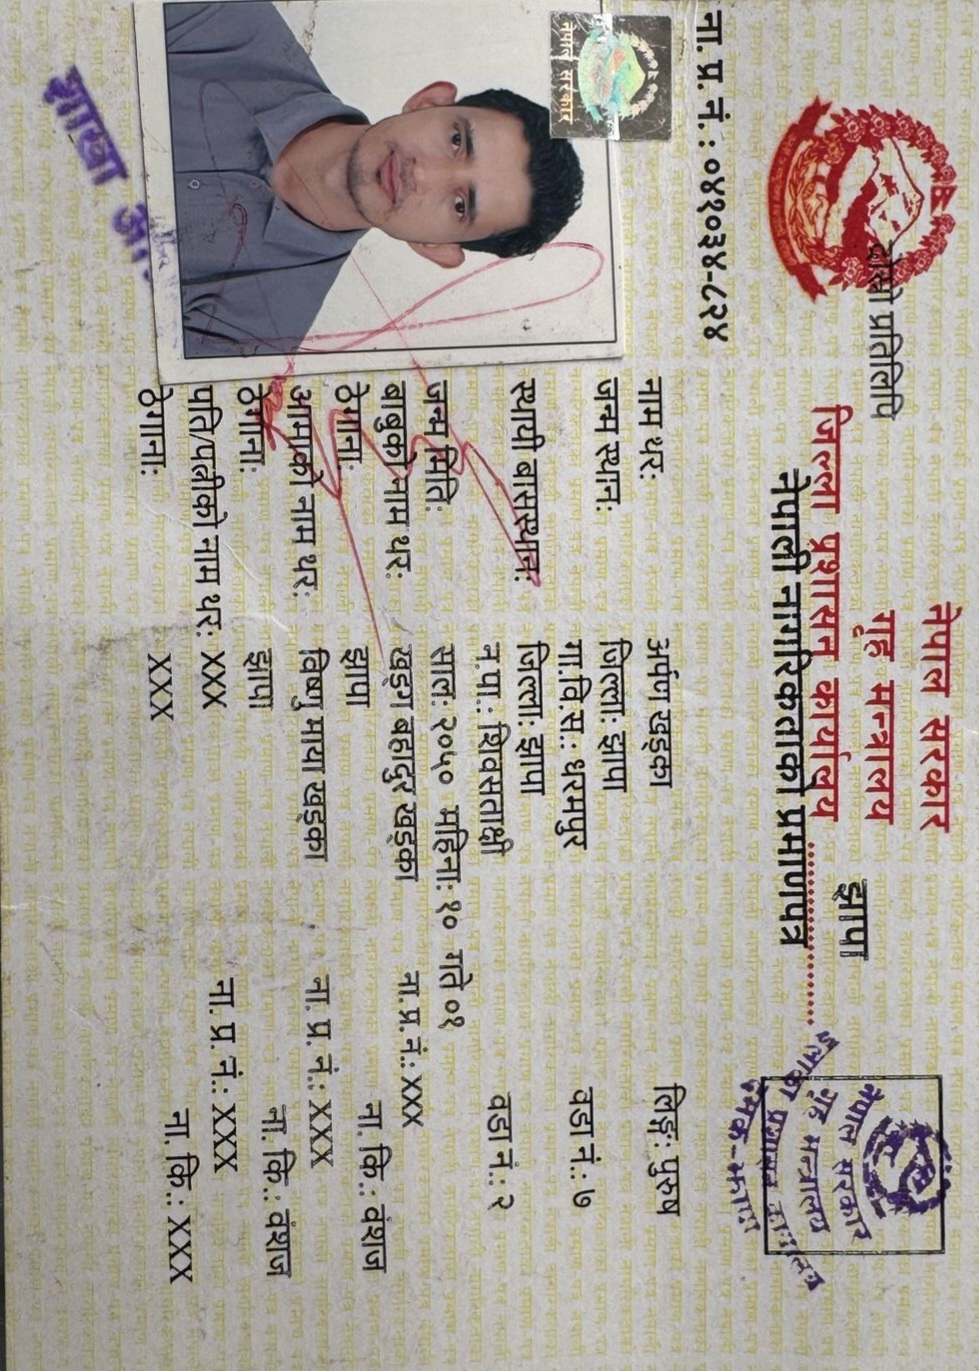 नेपाल सरकार
गृह मन्त्रालय
जिल्ला प्रशासन कार्यालय झापा
नेपाली नागरिकताको प्रमाणपत्र
दोस्रो प्रतिलिपि
नेपाल सरकार
गृह मन्त्रालय
इलाका प्रशासन कार्यालय
दमक-झापा
नेपाल सरकार
ना.प्र.नं.: ०४१०३४-८२४
नाम थर: अर्पण खड्का लिङ्ग: पुरुष
जन्म स्थान: जिल्ला: झापा
गा.वि.स.: धरमपुर वडा नं.: ७
स्थायी बासस्थान: जिल्ला: झापा
न.पा.: शिवसताक्षी वडा नं.: २
जन्म मिति: साल: २०५० महिना: १० गते ०१
बाबुको नाम थर: खड्ग बहादुर खड्का ना.प्र.नं.: XXX
ठेगाना: झापा ना. कि.: वंशज
आमाको नाम थर: विष्णु माया खड्का ना. प्र. नं.: XXX
ठेगाना: झापा ना. कि.: वंशज
पति/पत्नीको नाम थर: XXX ना. प्र. नं.: XXX
ठेगाना: XXX ना. कि.: XXX